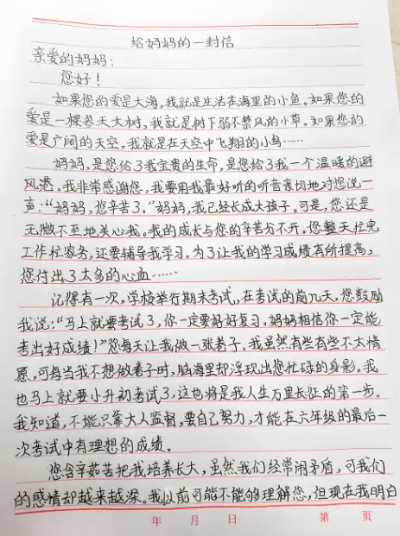 给妈妈的一封信
亲爱的妈妈：
您好！
如果您的爱是大海，我就是生活在海里的小鱼。如果您的
爱是一棵参天大树，我就是树下弱不禁风的小草。如果您的
爱是广阔的天空，我就是在天空中飞翔的小鸟……
妈妈，是您给了我宝贵的生命，是您给了我一个温暖的避
风港，我非常感谢您，我要用我最好听的听音亲切地对您说一
声：“妈妈，您辛苦了。”妈妈，我已经长成大孩子。可是，您还是
无微不至地关心我，我的成长与您的辛苦分不开。您整天忙完
工作忙家务，还要辅导我学习。为了让我的学习成绩有所提高，
您付出了太多的心血……
记得有一次，学校举行期末考试，在考试的前几天，您鼓励
我说：“马上就要考试了，你一定要好好复习，妈妈相信你一定能
考出好成绩！”您每天让我做一张卷子，我虽然有些有些不太情
愿，可每当我不想做卷子时，脑海里却浮现出您忙碌的身影。我
也马上就要小升初考试了，这也将是我人生万里长征的第一步。
我知道，不能只靠大人监督，要自己努力，才能在六年级的最后一
次考试中有理想的成绩。
您含辛茹苦把我培养长大，虽然我们经常闹矛盾，可我们
的感情却越来越深。我以前可能不能够理解您，但现在我明白
年 月 日 第 页